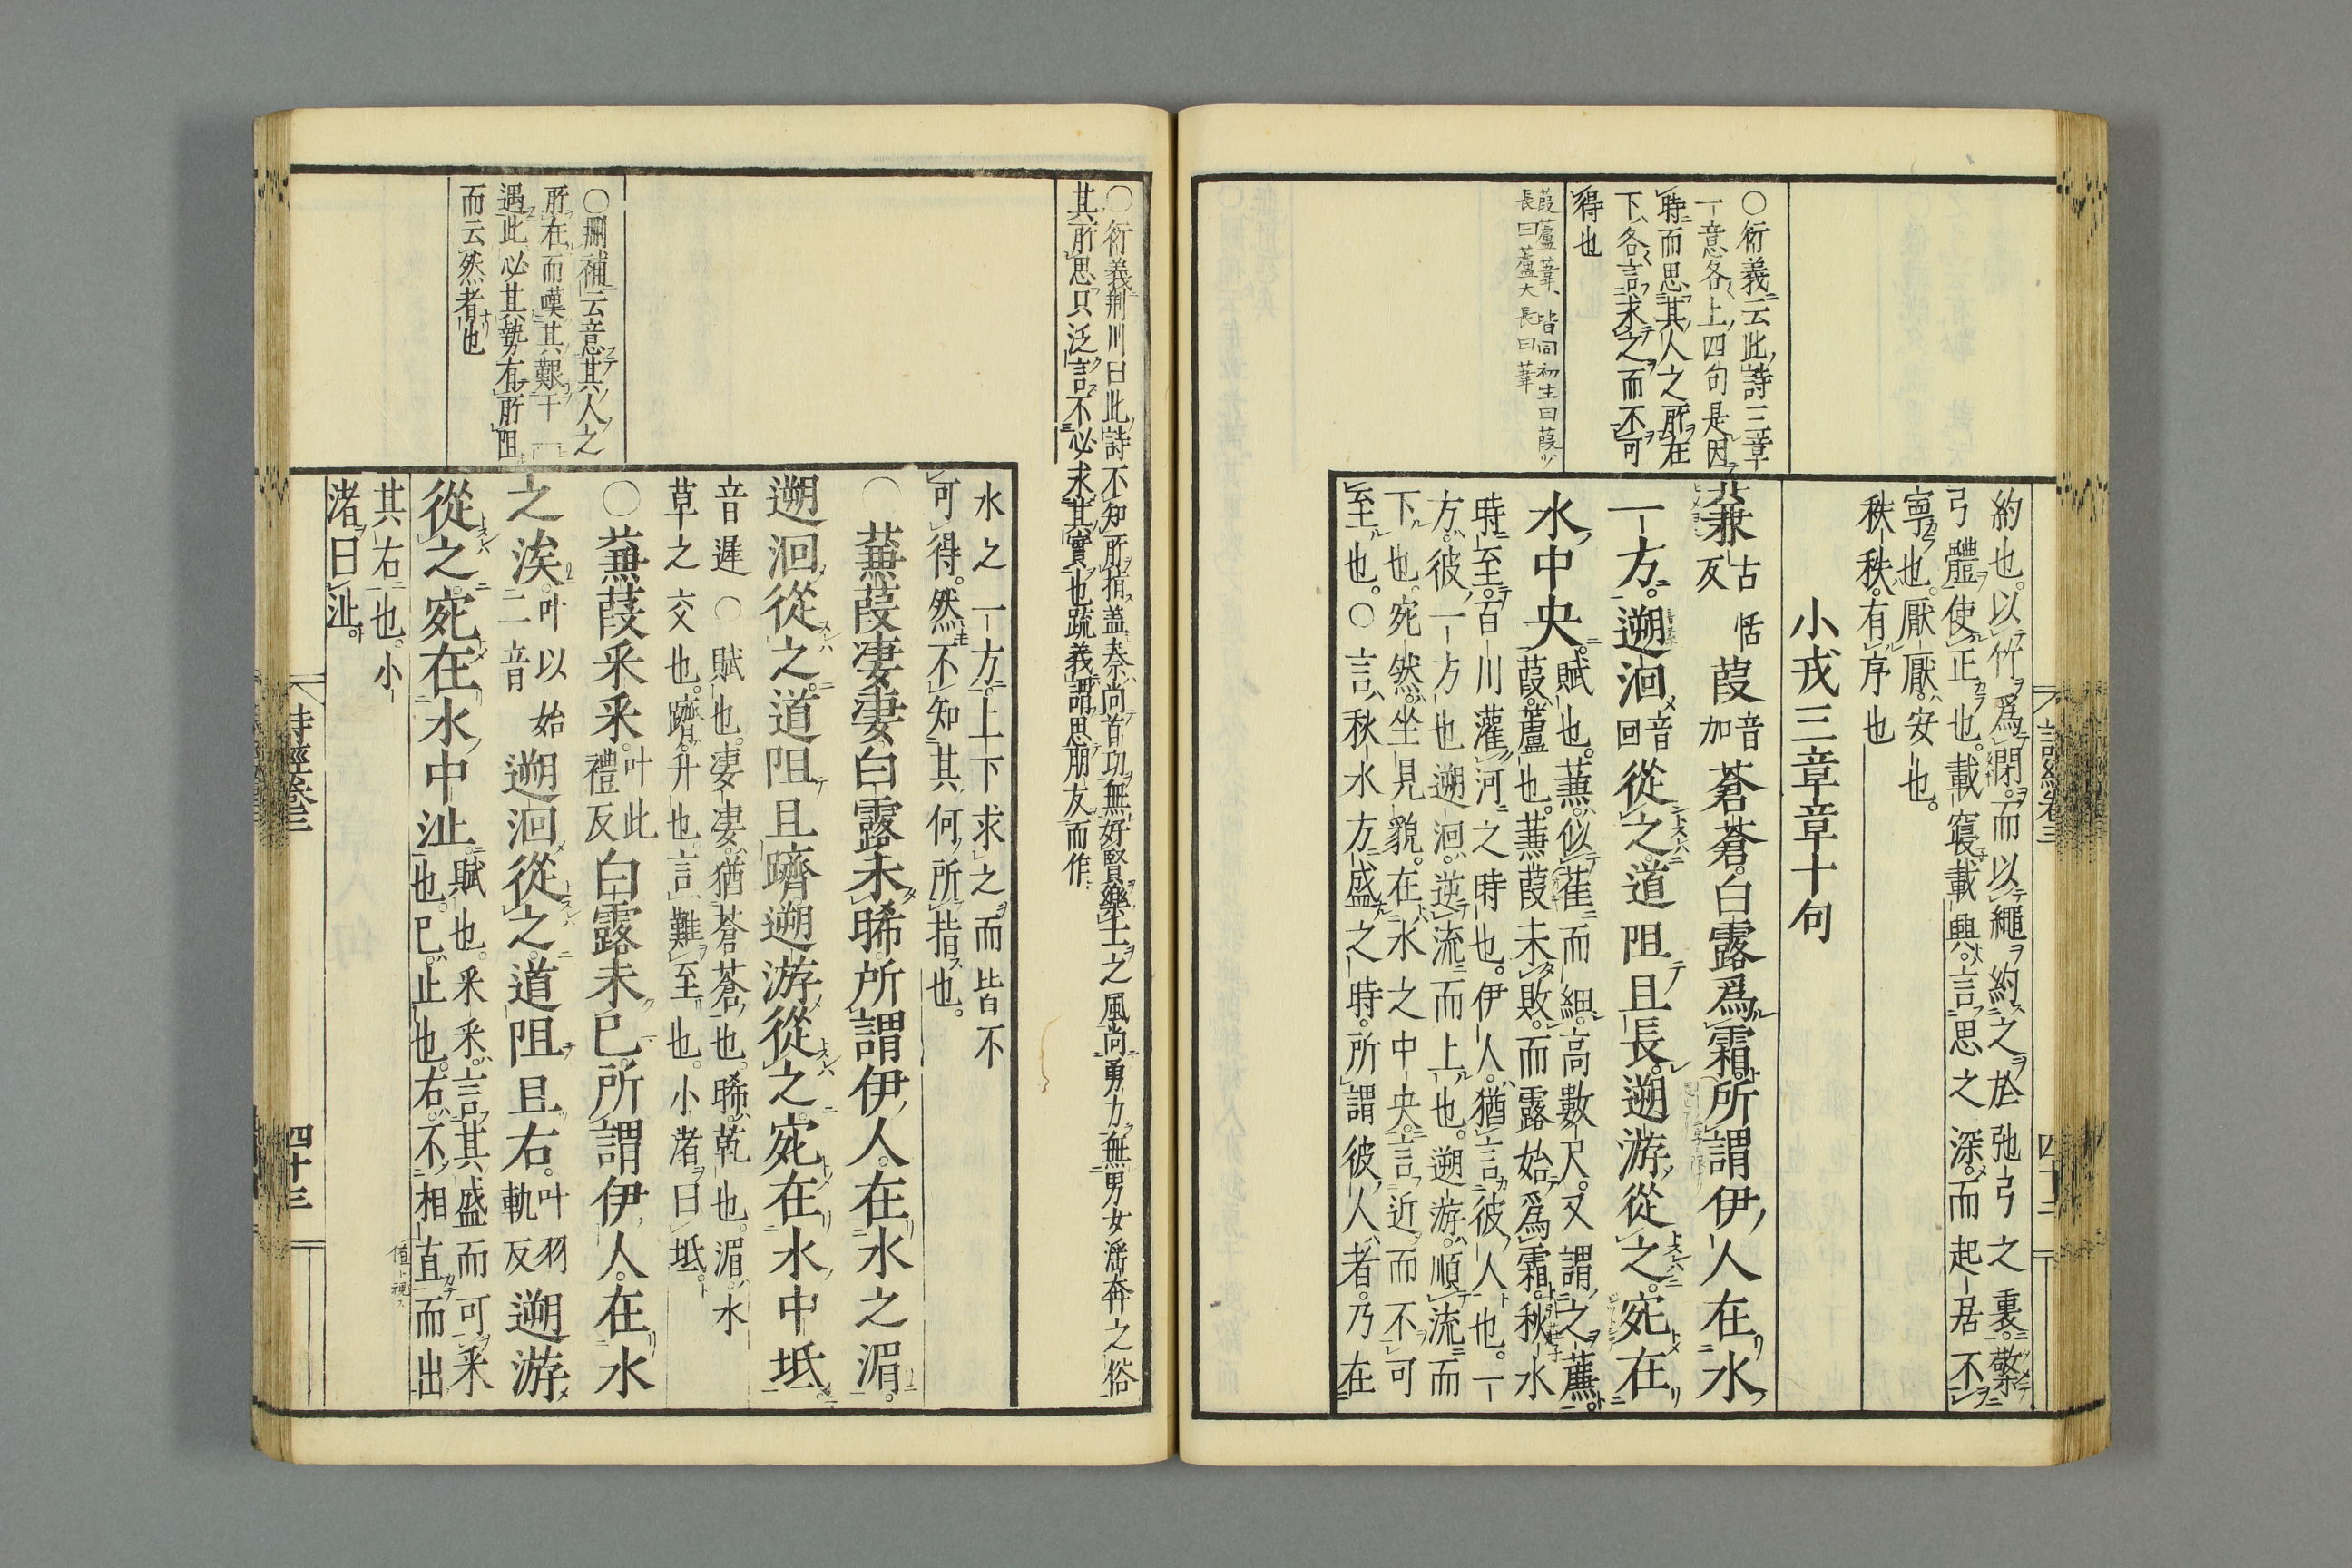 約也。以竹爲閉。而以繩約之於弛弓之裏。檠
弓體使正也。載寢載興。言思之深。而起居不
寧也。厭厭。安也。
秩秩。有序也
小戎三章章十句
蒹古恬反葭音加蒼蒼。白露爲霜。所謂伊人在水
一方。遡洄音回從之。道阻且長。遡游從之。宛在
水中央。賦也。蒹。似萑而細。高數尺。又謂之薕。
葭。蘆也。蒹葭未敗。而露始爲霜。秋水
時至。百川灌河之時也。伊人。猶言彼人也。一
方。彼一方也遡洄。逆流而上也。遡游。順流而
下也。宛然。坐見貌。在水之中央。言近而不可
至也。○言秋水方盛之時。所謂彼人者。乃在
○衍義云此詩三章
一意各上四句是因
時而思其人之所在
下各言求之而不可
得也
葭蘆葦、皆同初生曰葭少
長曰蘆大長曰葦
詩經卷三
四十二
○衍義荆川曰此詩不知所指蓋秦尚首功無好賢樂士之風尚勇力無男女滛奔之俗
其所思只泛言不必求其實也疏義謂思朋友而作
水之一方。上下求之而皆不
可得。然不知其何所指也。
○蒹葭凄凄白露未晞。所謂伊人。在水之湄。
遡洄從之。道阻且躋。遡游從之。宛在水中坻。
音遲○賦也。凄凄。猶蒼蒼也。晞。乾也。湄。水
草之交也。躋。升也言難至也。小渚曰坻。
○蒹葭采采。叶此禮反白露未已。所謂伊人。在水
之涘。叶以始二音遡洄從之。道阻且右。叶羽軌反遡游
從之。宛在水中沚。賦也。采采。言其盛而可采
也。已。止也。右。不相直而出
其右也。小
渚曰沚。
○刪補云意其人之
所在而嘆其艱于一
遇此必其勢有所阻
而云然者也
值ト視ス
詩經卷三
四十三